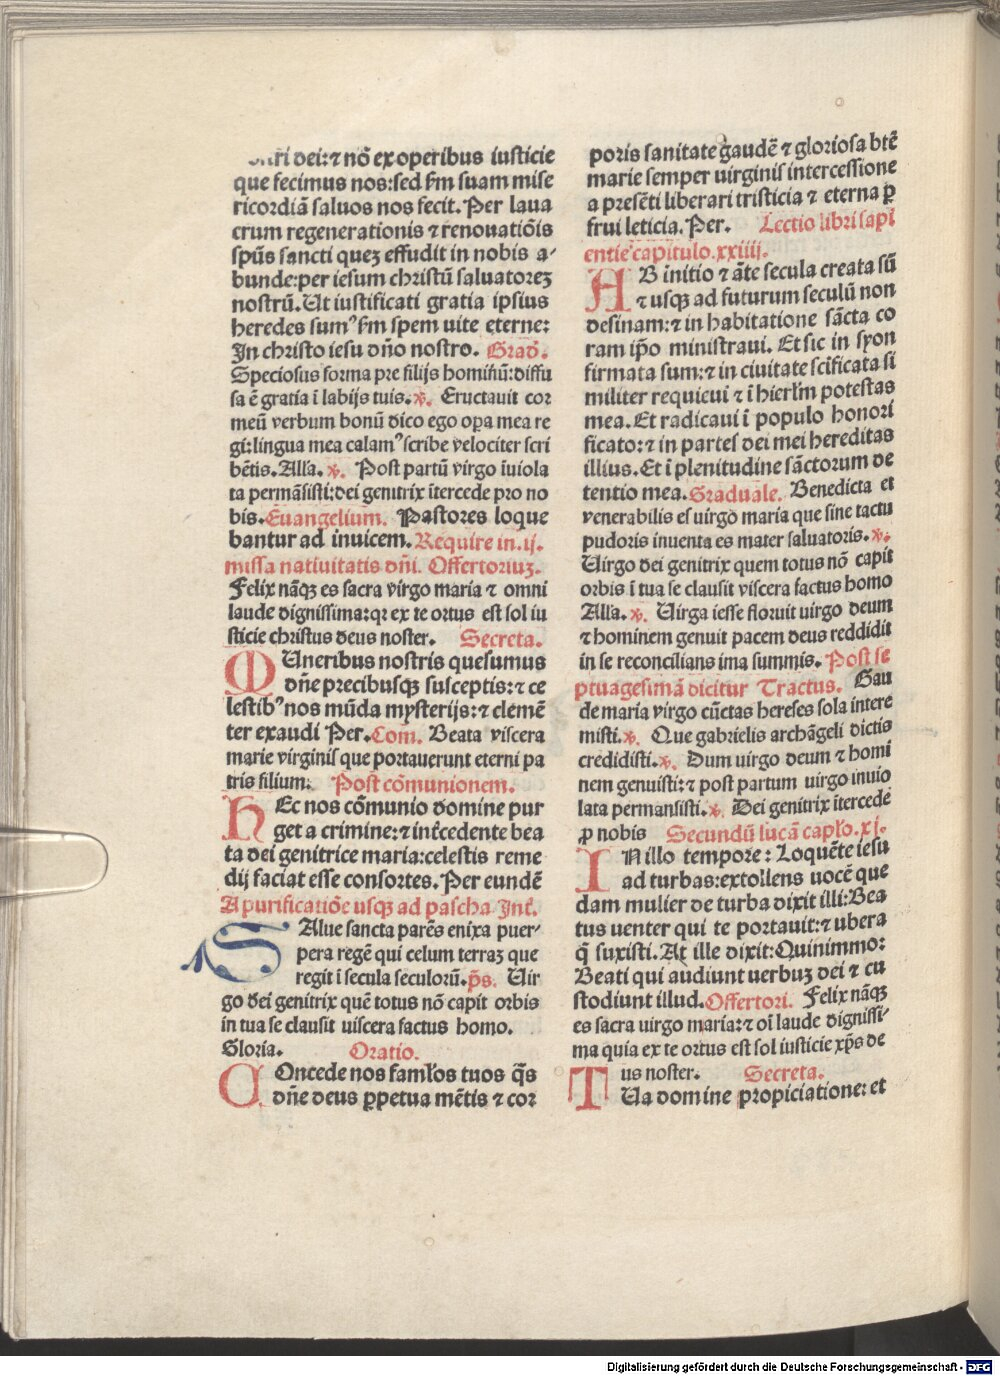 dei:⁊ nō ex operibus iusticie
que fecimus nos:sed ẜm suam mise
ricordiā saluos nos fecit. Per laua
crum regenerationis ⁊ renouatiōis
spūs sancti queꝫ effudit in nobis a⸗
bunde:per iesum christū saluatoreꝫ
nostrū. Ut iustificati gratia ipsius
heredes sumꝰ ẜm spem uite eterne:
In christo iesu dn̄o nostro. Grad̄.
Speciosus forma pre filijs hominū:diffu
sa ē gratia ī labijs tuis. ℣. Eructauit cor
meū verbum bonū dico ego oꝑa mea re
gi:lingua mea calamꝰ scribe velociter scri
bētis. Alla. ℣. Post partū virgo īuiola
ta permāsisti:dei genitrix ītercede pro no
bis. Euangelium. Pastores loque
bantur ad inuicem. Require in.ij.
missa natiuitatis dn̄i. Offertoriuꝫ.
Felix nāqꝫ es sacra virgo maria ⁊ omni
laude dignissima:qꝛ ex te ortus est sol iu
sticie christus deus noster. Secreta.
MUneribus nostris quesumus
dn̄e precibusqꝫ susceptis:⁊ ce
lestibꝰ nos mūda mysterijs:⁊ clemē
ter exaudi Per. Com. Beata viscera
marie virginis que portauerunt eterni pa
tris filium. Post cōmunionem.
HEc nos cōmunio domine pur
get a crimine:⁊ int̄cedente bea
ta dei genitrice maria:celestis reme
dij faciat esse consortes. Per eundē
A purificatiōe usqꝫ ad pascha Int̄.
SAlue sancta parēs enixa puer⸗
pera regē qui celum terraꝫ que
regit ī secula seculorū. p̄s. Uir
go dei genitrix quē totus nō capit orbis
in tua se clausit uiscera factus homo.
Gloria. Oratio.
COncede nos famłos tuos q̄s
dn̄e deus ꝑpetua mētis ⁊ cor
poris sanitate gaudē ⁊ gloriosa btē
marie semper uirginis intercessione
a presēti liberari tristicia ⁊ eterna ꝑ
frui leticia. Per. Lectio libri sapī
entie capitulo.xxiiij.
AB initio ⁊ āte secula creata sū
⁊ usqꝫ ad futurum seculū non
desinam:⁊ in habitatione sācta co
ram ip̄o ministraui. Et sic in syon
firmata sum:⁊ in ciuitate sc̄ificata si
militer requieui ⁊ ī hierłm potestas
mea. Et radicaui ī populo honori
ficato:⁊ in partes dei mei hereditas
illius. Et ī plenitudine sāctorum de
tentio mea. Graduale. Benedicta et
venerabilis es uirgo maria que sine tactu
pudoris inuenta es mater saluatoris. ℣.
Uirgo dei genitrix quem totus nō capit
orbis ī tua se clausit viscera factus homo
Alla. ℣. Uirga iesse floruit uirgo deum
⁊ hominem genuit pacem deus reddidit
in se reconcilians ima summis. Post se
ptuagesimā dicitur Tractus. Gau
de maria virgo cūctas hereses sola intere
misti. ℣. Que gabrielis archāgeli dictis
credidisti. ℣. Dum uirgo deum ⁊ homi
nem genuisti:⁊ post partum uirgo inuio
lata permansisti. ℣. Dei genitrix ītercede
ꝓ nobis Secundū lucā capło.xj.
IN illo tempore: Loquēte iesu
ad turbas:extollens uocē que
dam mulier de turba dixit illi:Bea
tus uenter qui te portauit:⁊ ubera
q̄ suxisti. At ille dixit:Quinimmo:
Beati qui audiunt uerbuꝫ dei ⁊ cu
stodiunt illud. Offertori. Felix nāqꝫ
es sacra uirgo maria:⁊ oī laude dignissi⸗
ma quia ex te ortus est sol iusticie xp̄s de
us noster. Secreta.
TUa domine propiciatione:et
Digitalisierung gefördert durch die Deutsche Forschungsgemeinschaft - DFG